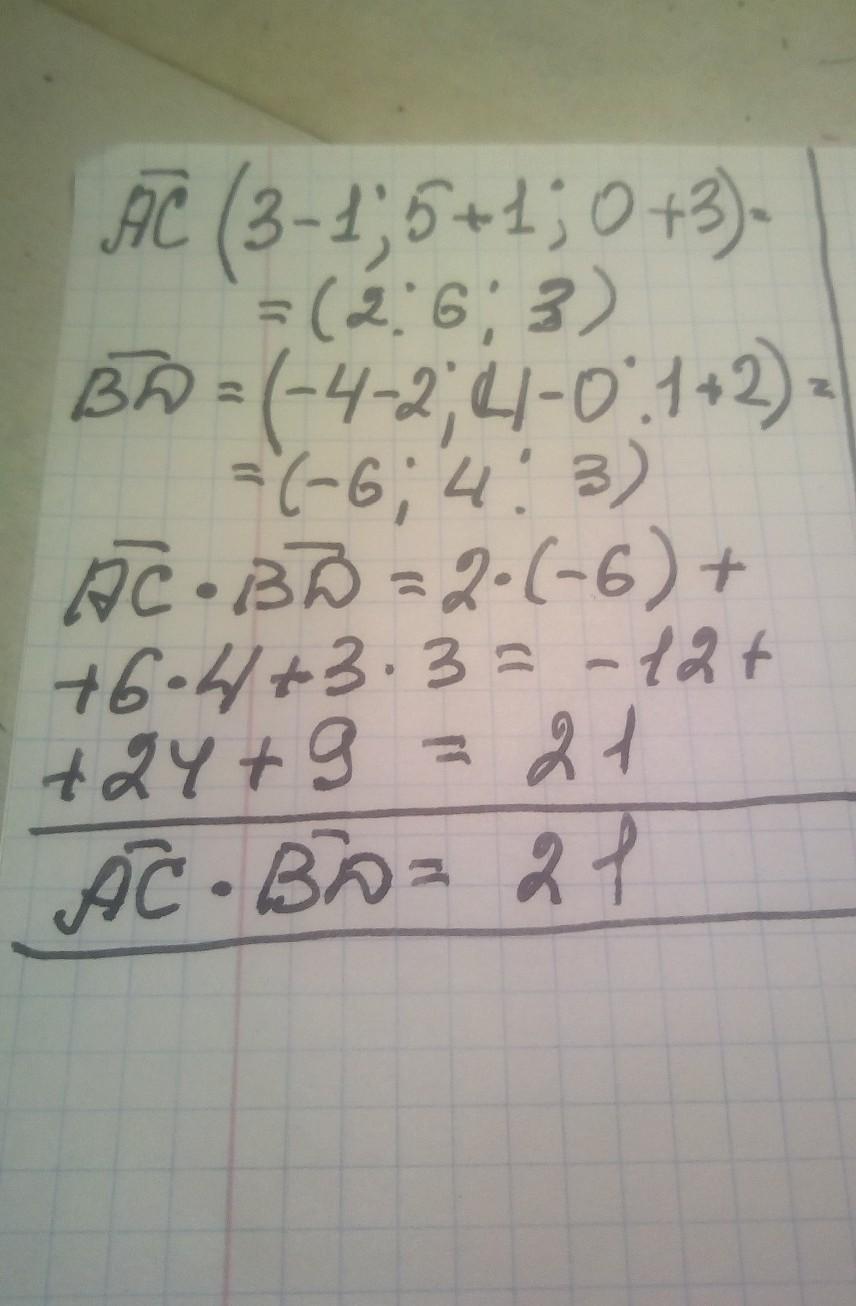 A̅C̅ (3-1; 5+1; 0+3)=
=(2; 6; 3)
B̅D̅ = (-4-2; 4-0; 1+2)=
=(-6; 4; 3)
A̅C̅ · B̅D̅ = 2·(-6) +
+6·4+3·3 = -12+
+24+9 = 21
A̅C̅ · B̅D̅ = 21